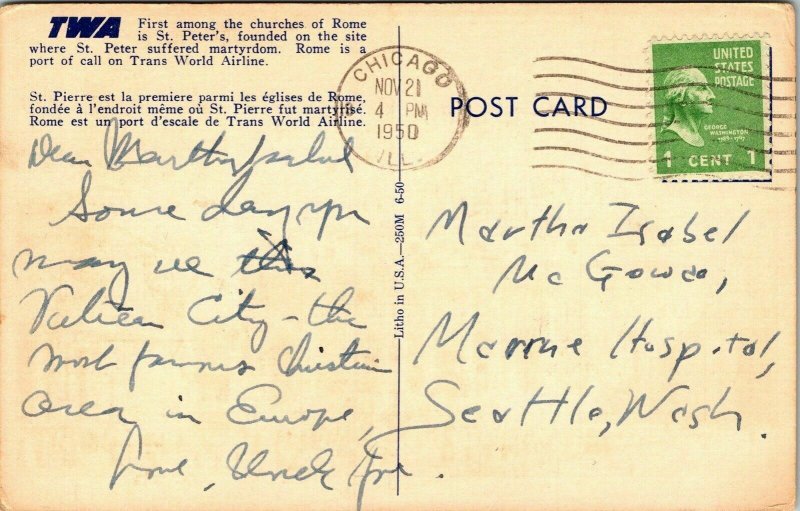 TWA First among the churches of Rome
is St. Peter's, founded on the site
where St. Peter suffered martyrdom. Rome is a
port of call on Trans World Airline.
St. Pierre est la premiere parmi les églises de Rome,
fondée à l'endroit même où St. Pierre fut martyrisé.
Rome est un port d'escale de Trans World Airline.
Dear Martha Isabel
Some day you
may see this
Vatican City - the
most famous Christian
area in Europe,
Love, Uncle Joe.
Litho in U.S.A.—250M 6-50
CHICAGO
NOV 21
4 PM
1950
ILL.
POST CARD
UNITED
STATES
POSTAGE
GEORGE
WASHINGTON
1789-1797
1 CENT 1
Martha Isabel
Mc Gowan,
Marine Hospital,
Seattle, Wash.